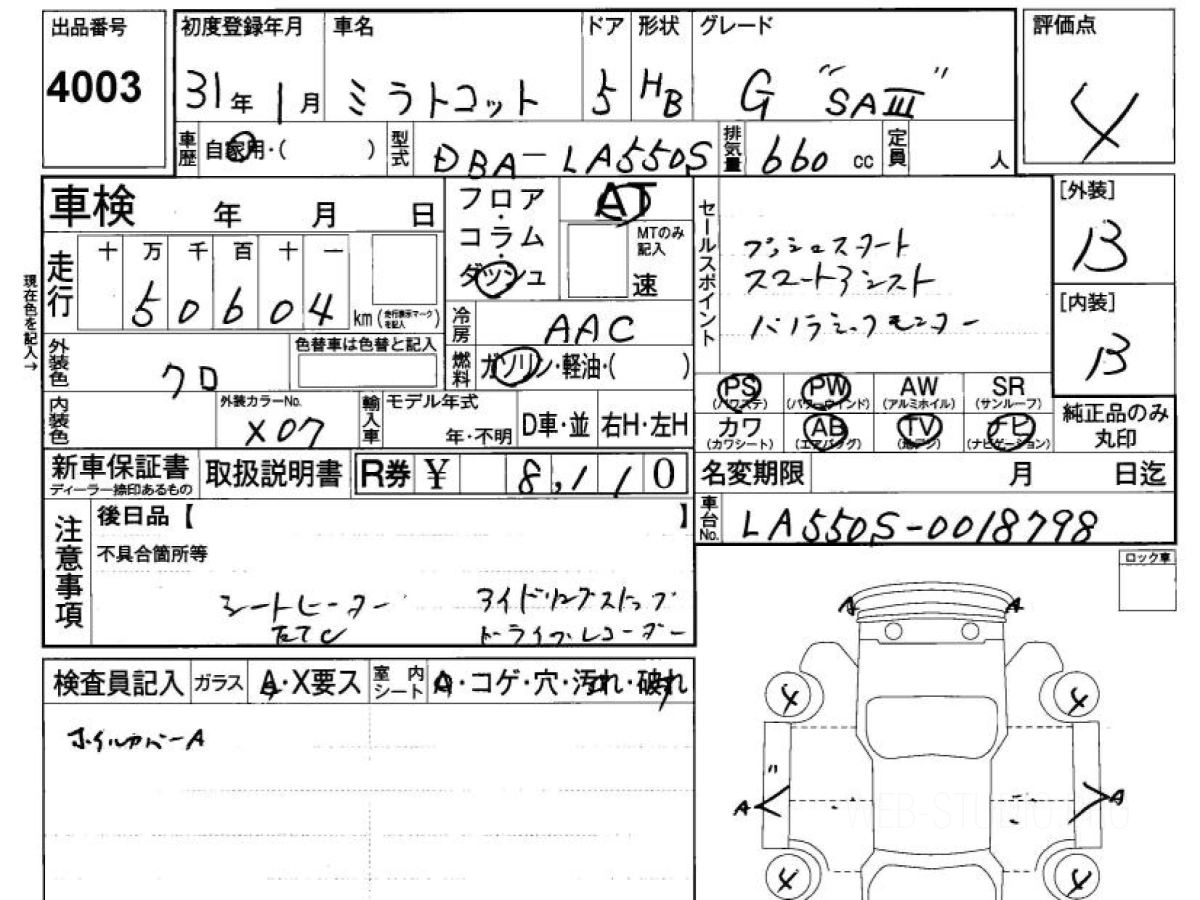 出品番号
4003
初度登録年月 車名 ドア 形状 グレード
31年 1月 ミラトコット 5 HB G "SAⅢ"
評価点
4
車歴 自家用・( ) 型式 DBA-LA550S 排気量 660 cc 定員 人
車検 年 月 日
フロア・コラム・ダッシュ
AT
MTのみ記入
速
[外装]
B
[内装]
B
セールスポイント
プッシュスタート
スマートアシスト
パノラミックモニター
現在色を記入→
走行 十 万 千 百 十 一
50604 km (走行表示マークを記入)
冷房 AAC
燃料 ガソリン・軽油・( )
外装色 クロ
色替車は色替と記入
内装色
外装カラーNo.
X07
輸入車 モデル年式
年・不明 D車・並 右H・左H
PS (パワステ) PW (パワーウインド) AW (アルミホイル) SR (サンルーフ)
カワ (カワシート) AB (エアバッグ) TV (地デジ) ナビ (ナビゲーション)
純正品のみ丸印
新車保証書 ディーラー捺印あるもの
取扱説明書
R券 ¥ 8,110
名変期限 月 日迄
車台No. LA550S-0018798
注意事項
後日品【 】
不具合箇所等
シートヒーター アイドリングストップ
ドライブレコーダー
ロック車
検査員記入 ガラス A・X要ス 室内シート A・コゲ・穴・汚れ・破れ
ホイルカバーA
A A
4 4
"
A A
4 4
WEB-STUDIO.PRO